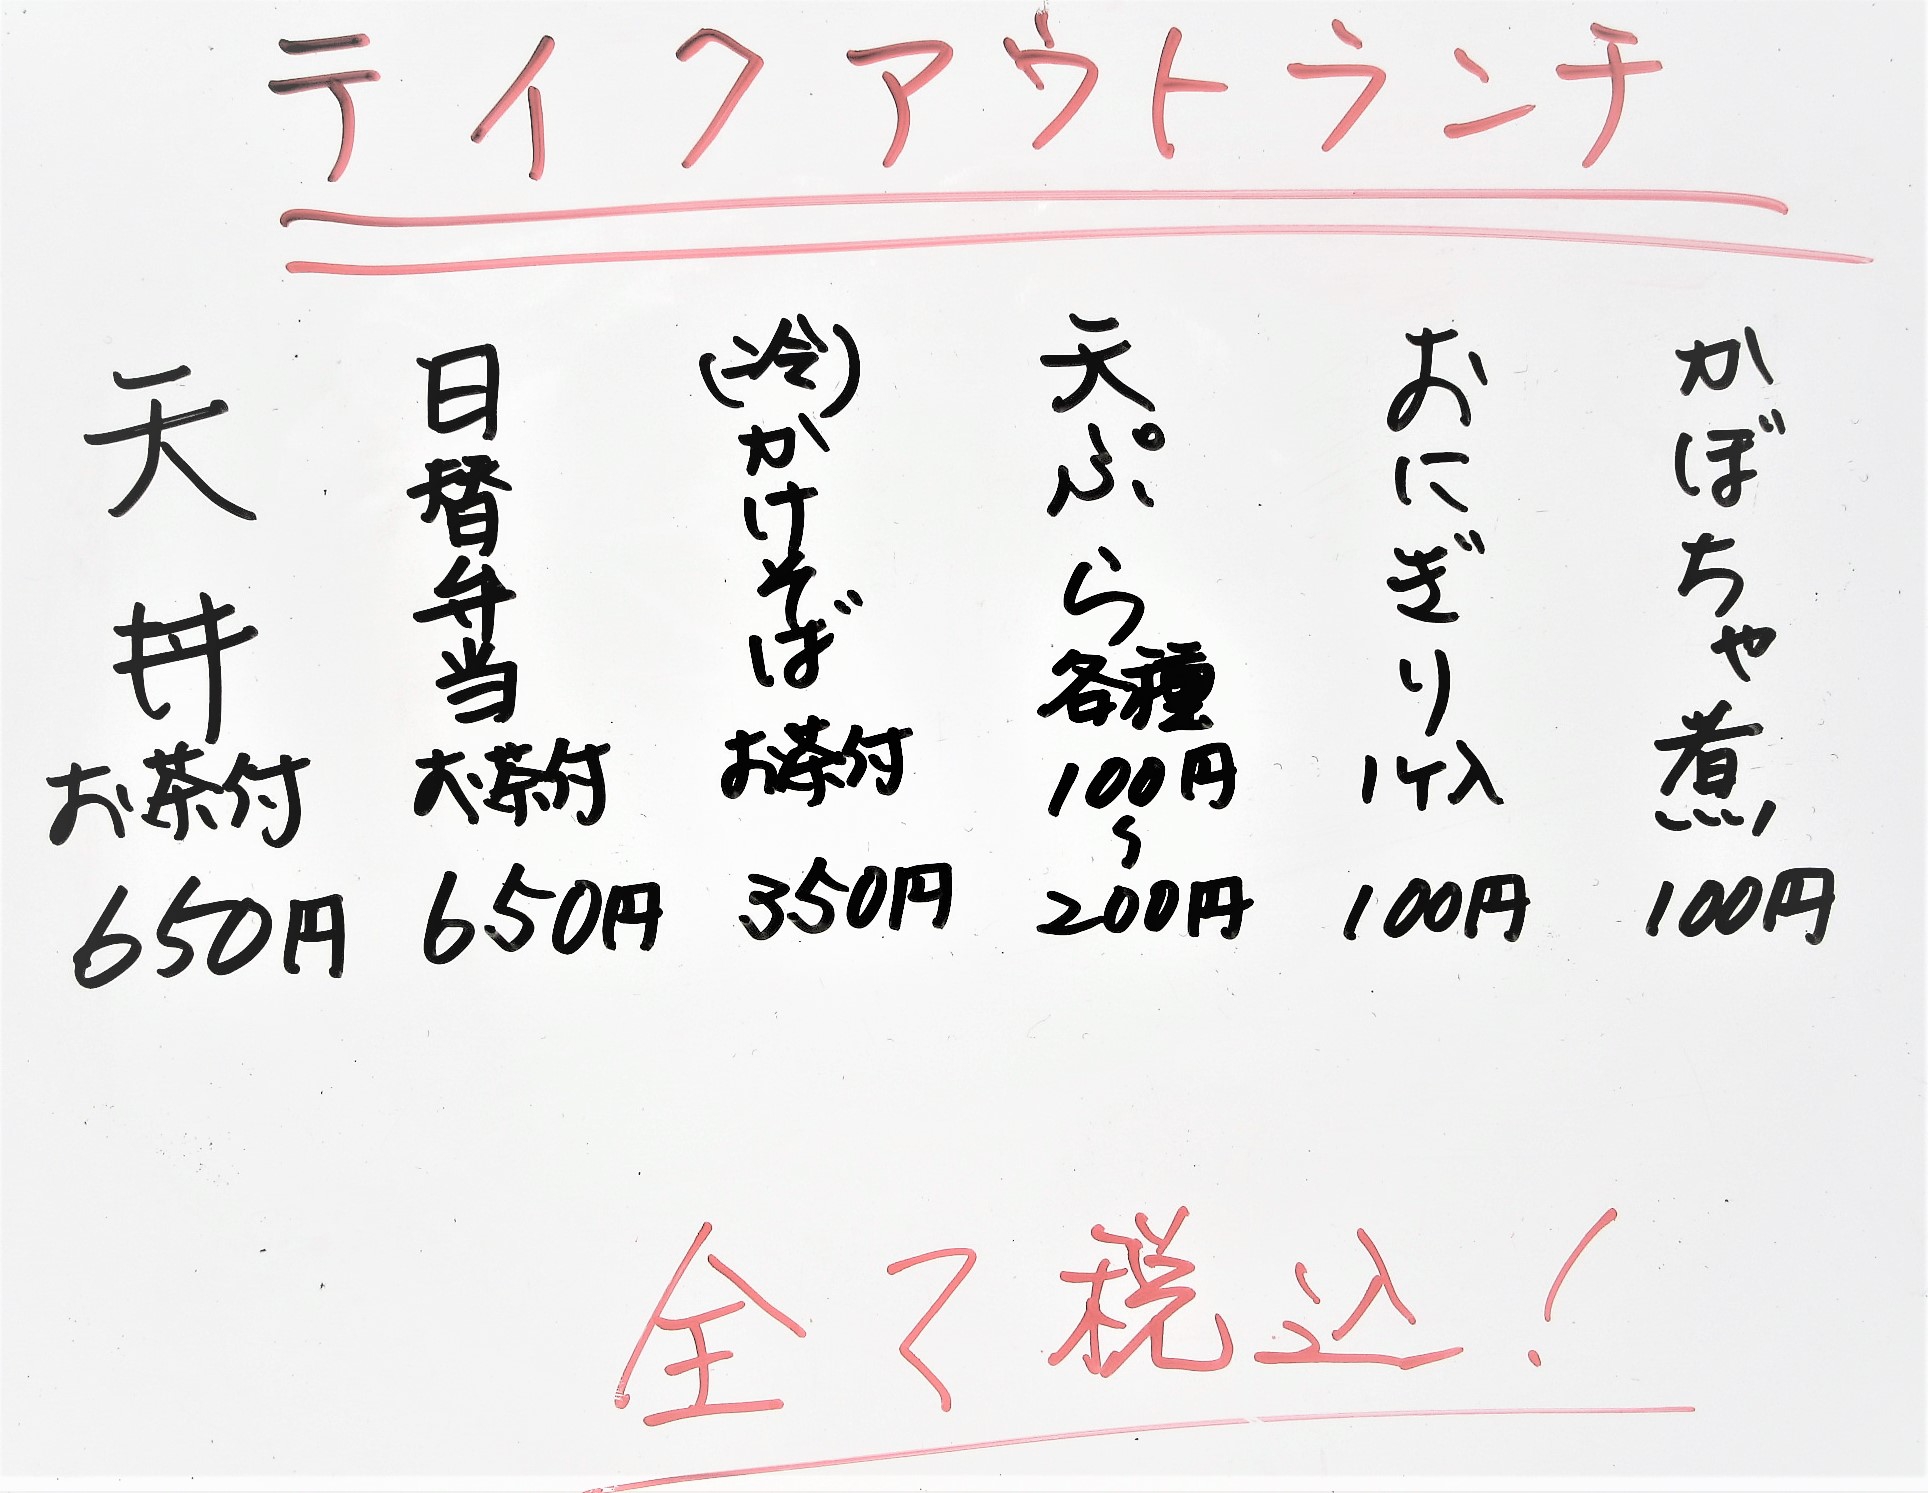 テイクアウトランチ
天丼
お茶付
650円
日替弁当
お茶付
650円
(冷)かけそば
お茶付
350円
天ぷら
各種
100円
〜
200円
おにぎり
1ケ入
100円
かぼちゃ煮
100円
全て税込!